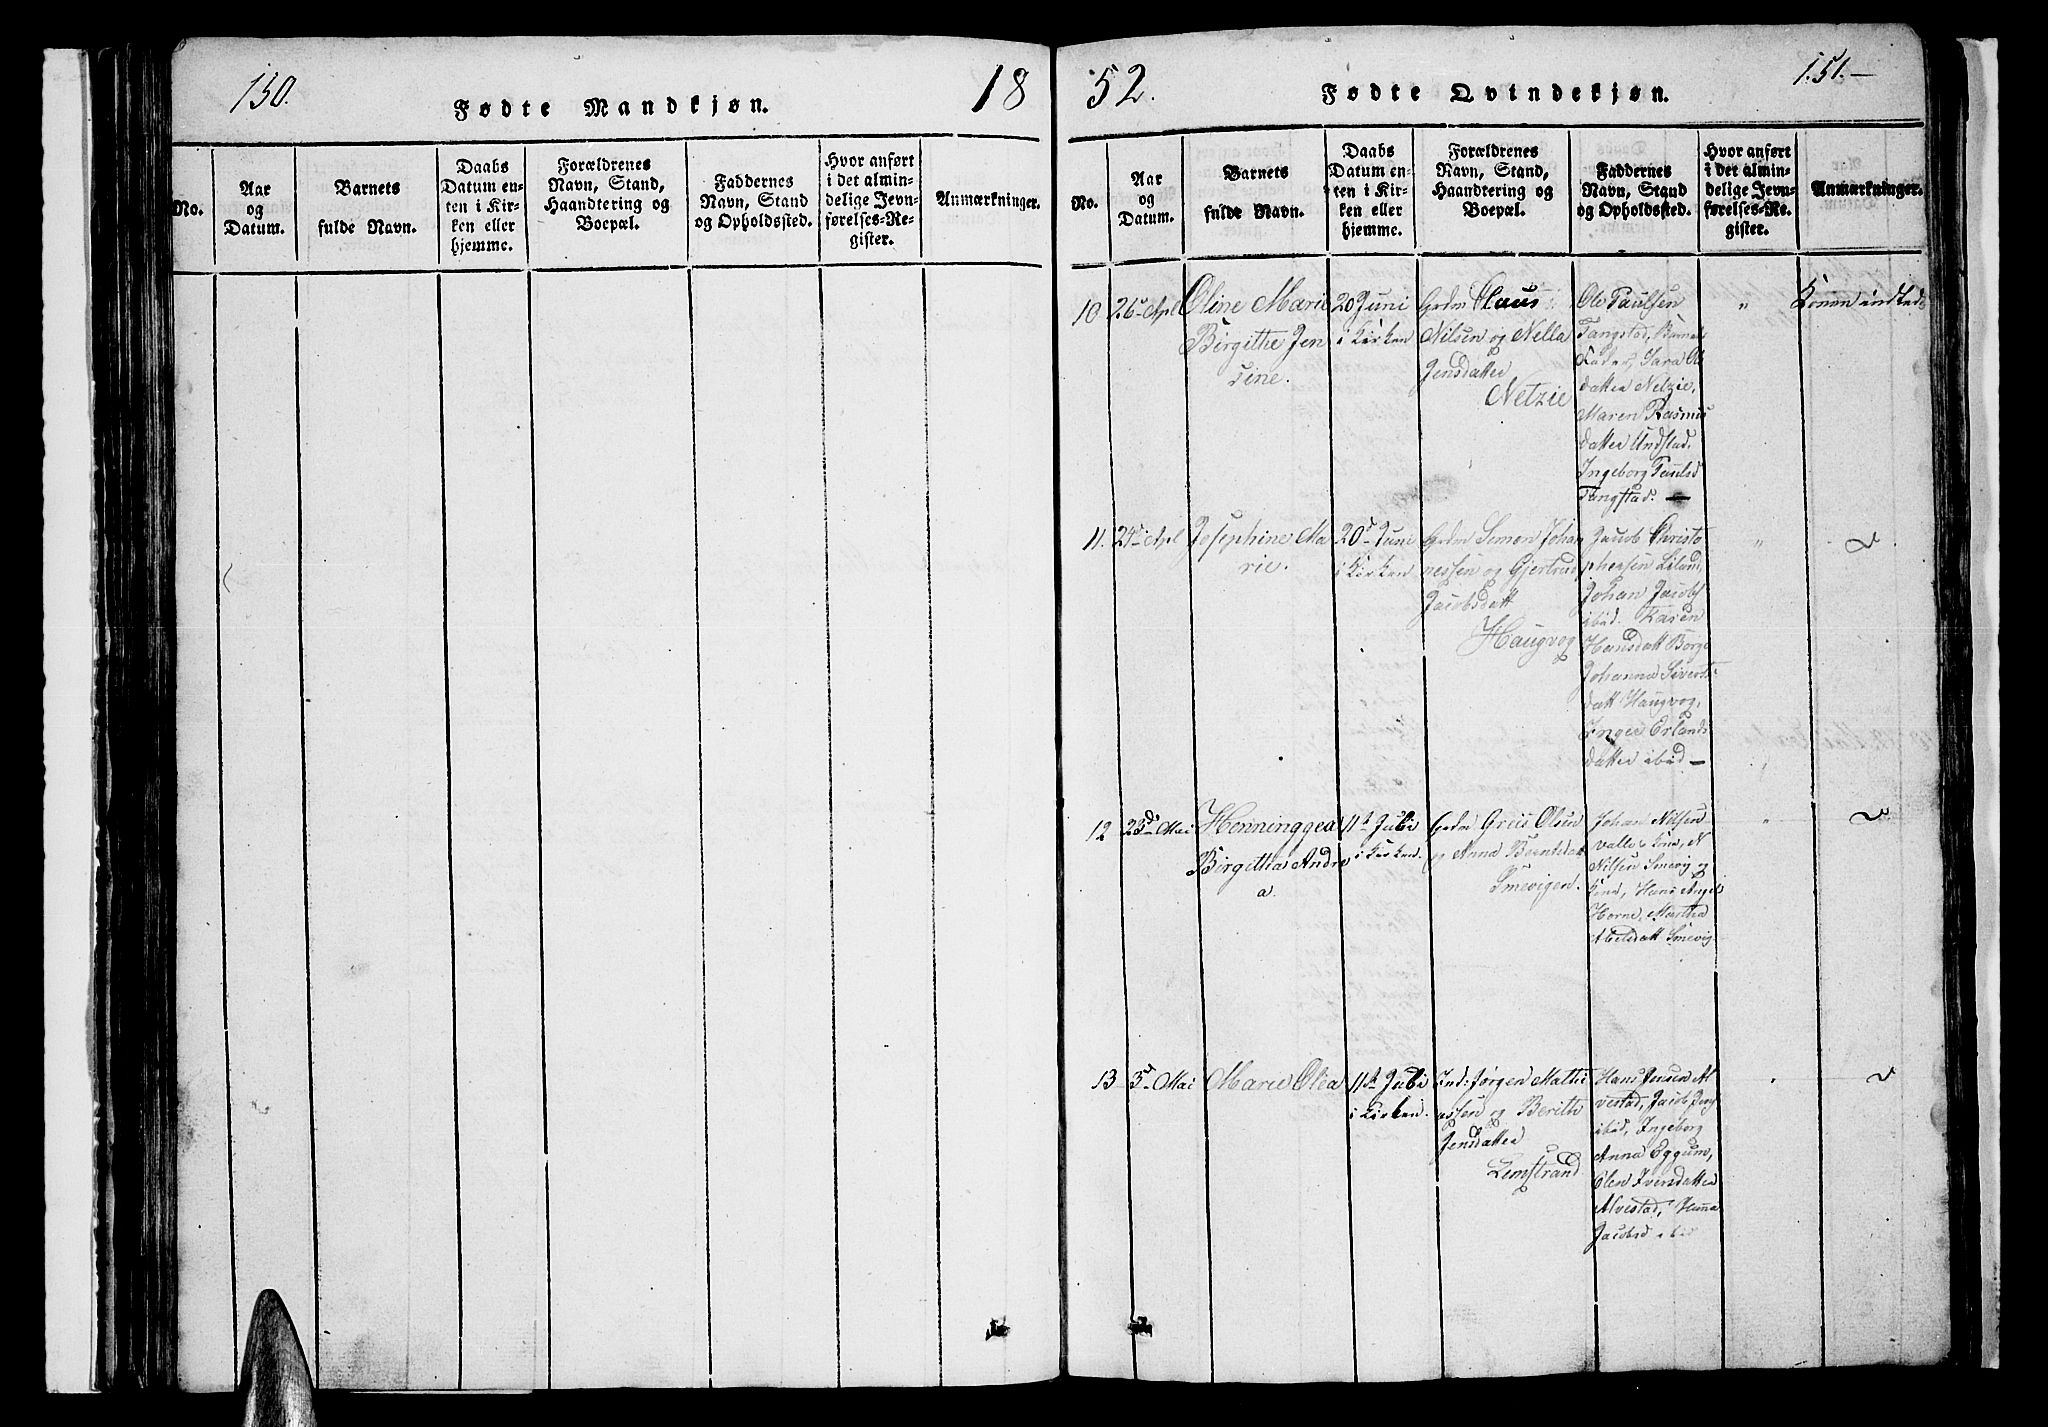 150.
18
Fødte Mandkjøn.
No.
Aar
og
Datum.
Barnets
fulde Navn.
Daabs
Datum en-
ten i Kir-
ken eller
hjemme.
Forældrenes
Navn, Stand,
Haandtering og
Boepæl.
Faddernes
Navn, Stand
og Opholdssted.
Hvor anført
i det almin-
delige Jevn-
førelses-Re-
gister.
Anmærkninger.
52.
151.—
Fødte Qvindekjøn.
No.
Aar
og
Datum.
Barnets
fulde Navn.
Daabs
Datum en-
ten i Kir-
ken eller
hjemme.
Forældrenes
Navn, Stand,
Haandtering og
Boepæl.
Faddernes
Navn, Stand
og Opholdssted.
Hvor anført
i det almin-
delige Jevn-
førelses-Re-
gister.
Anmærkninger.
10
26 Apl
Oline Marie
Birgithe Jen
sine.
20 Juni
i Kirken
Grdm Claus
Nilsen og Nella
Jensdatter
Netzie
Ole Paulsen
Tangstad, Barnets
Fader, Sara Ols
datter Netzie,
Maren Rasmus
datter Undstad.
Ingeborg Paulsd
Tangstad. —
"
Konen indledt
11.
24de Apl
Josephine Ma
rie.
20d Juni
i Kirken
Grdm Simon Johan
nessen og Gjertrud
Jacobsdatt
Haugvog
Jacob Christo
phersen Liland,
Johan Jacobs
ibid. Karen
Hansdatt Borge
Johanna Siverts
datt Haugvog,
Inger Erlands
datter ibid —
"
12
23d Mai
Henninggea
Birgitha Andre
a.
11t Juli
i Kirken.
Grdm Greis Olsen
og Anna Berntsdatt
Smevigen.
Johan Nilsen
Valle & Kone, N
Nilsen Smevig og
Kone, Hans Angel
Horne, Martha
Abelsdatt Smevig
"
13
3d Mai
Marie Olea
11te Juli
i Kirken.
Ind: Jørgen Mathi
assen og Berith
Jensdatter
Limstrand
Hans Jensen Al
vestad, Jacob Jens
ibid, Ingeborg
Anna Eggum,
Elen Iversdatter
Alvestad, Hanna
Jacobsd ibid
"